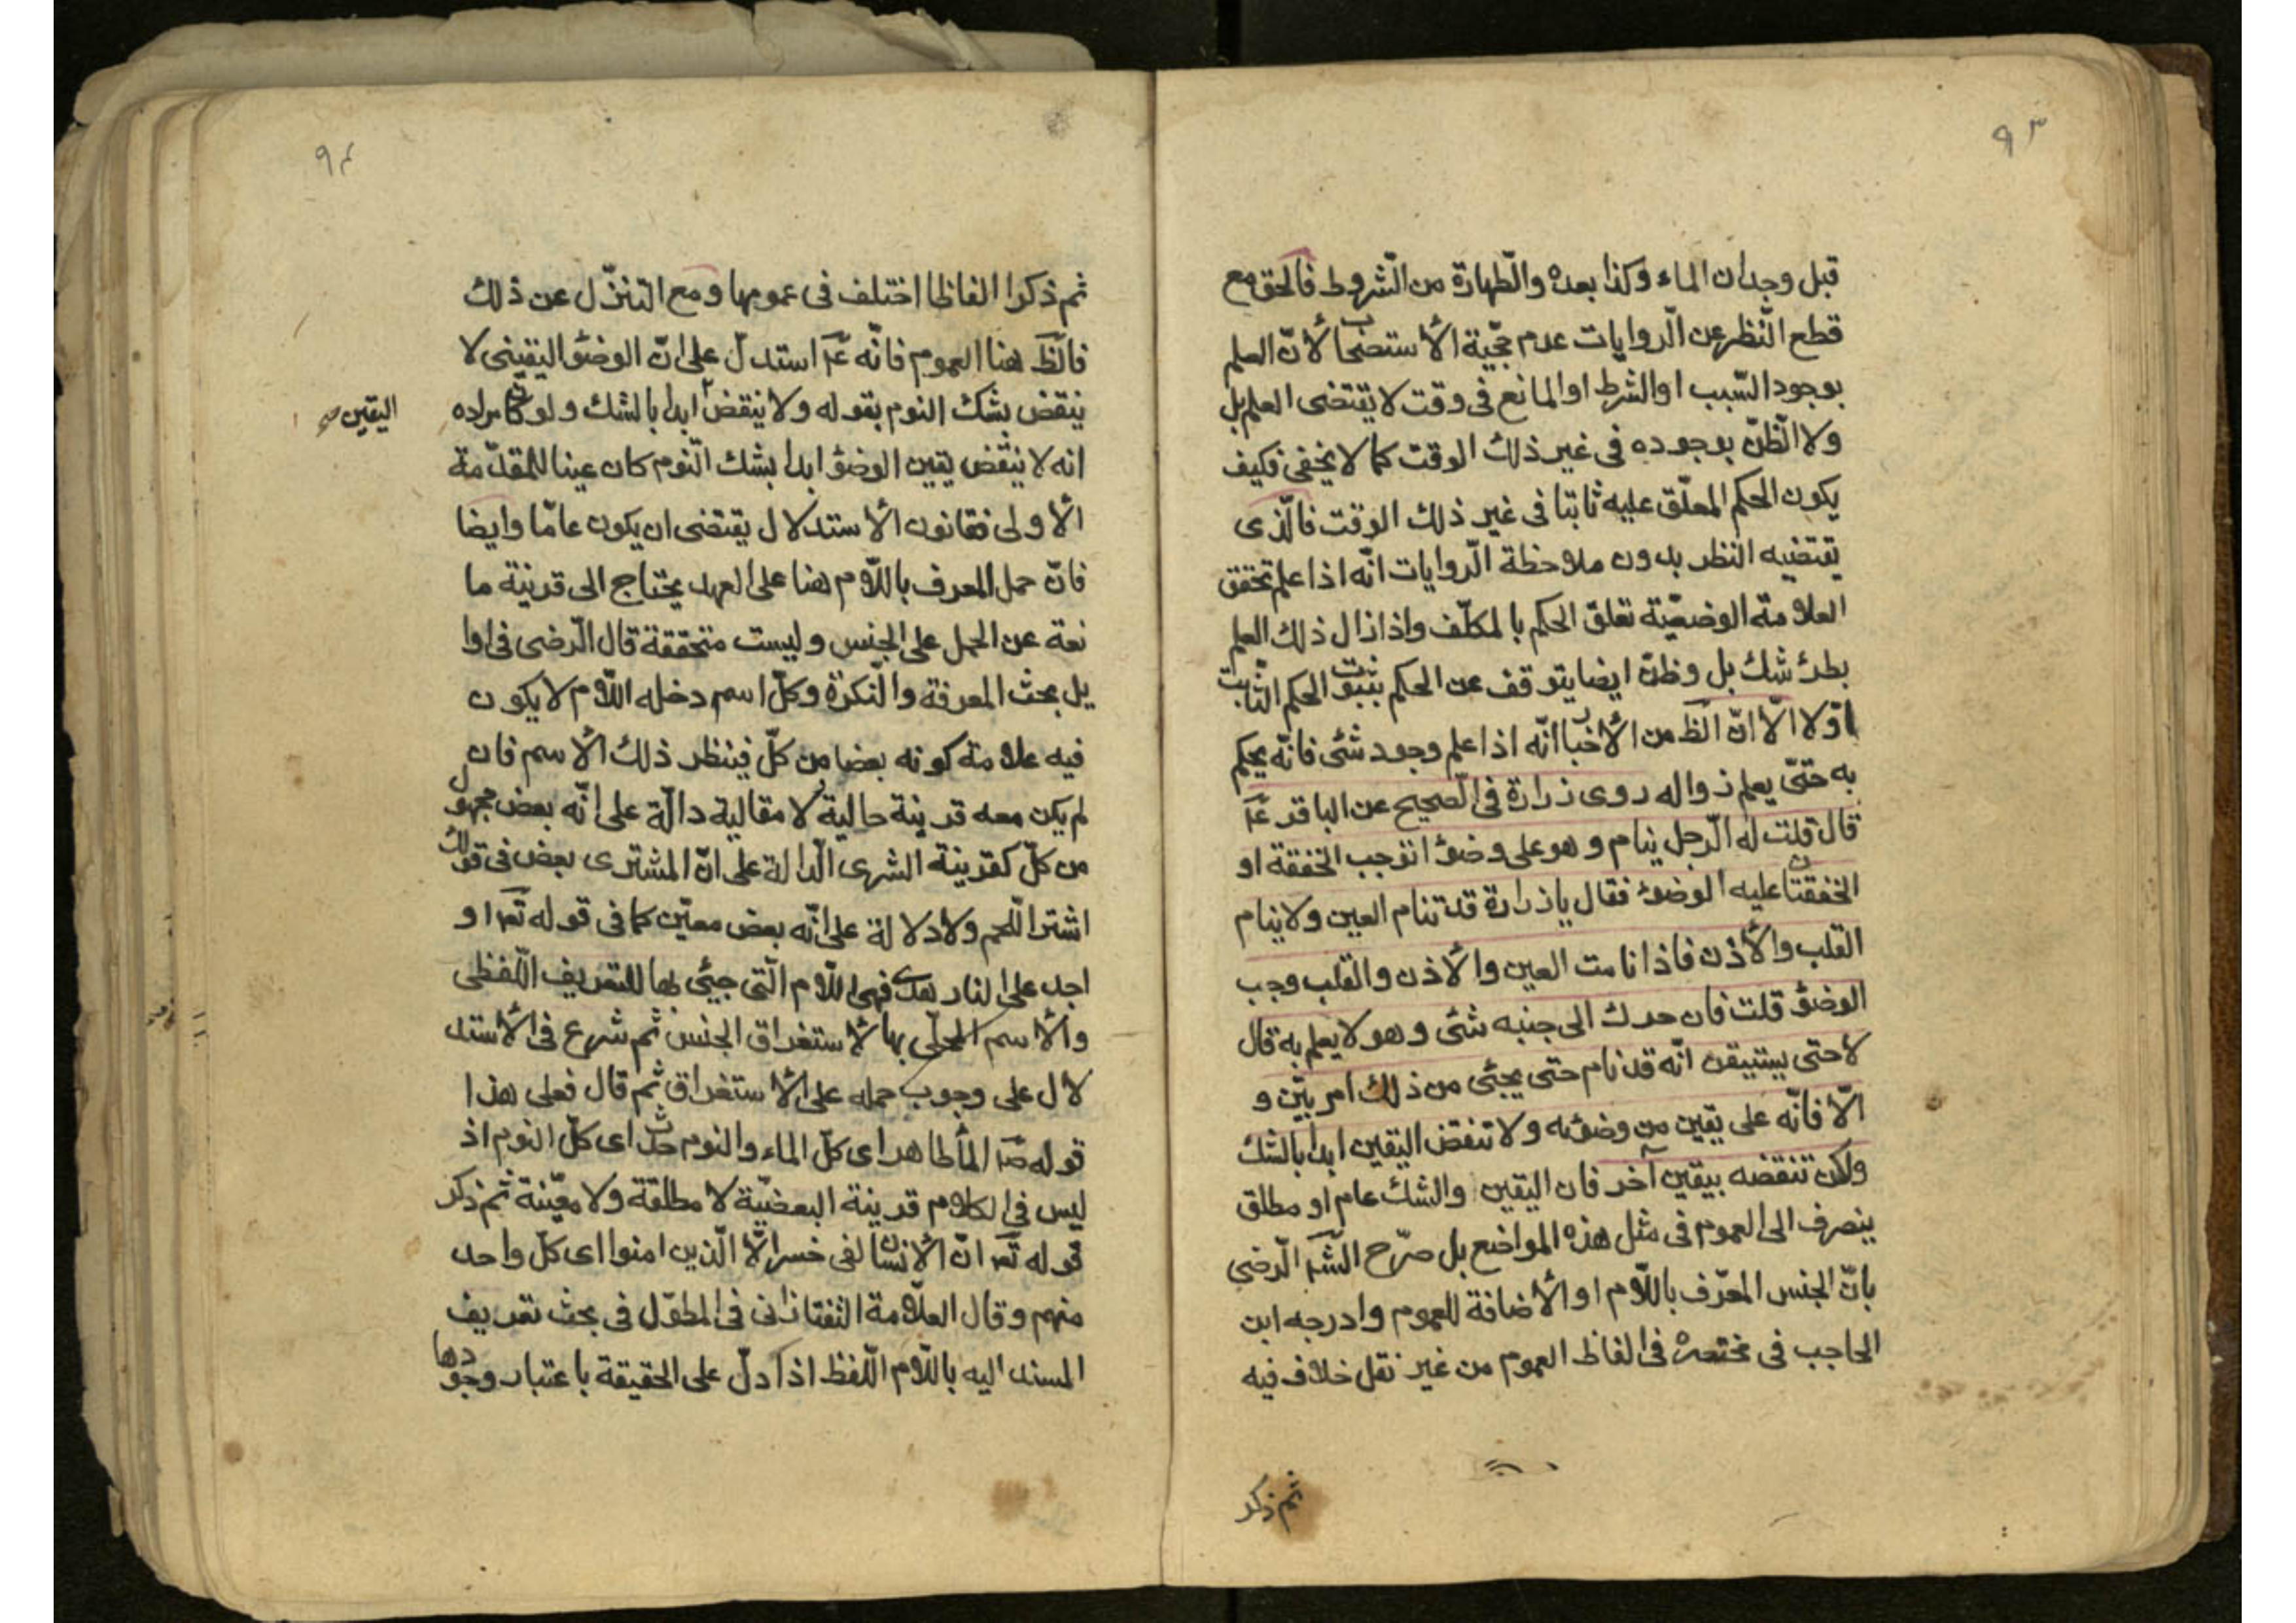 ٩٣
قبل وجدان الماء وكذا بعده والطهارة من الشروط فالحق مع
قطع النظر عن الروايات عدم حجّية الأستصحاب لأنّ العلم
بوجود السّبب او الشرط او المانع فى وقت لا يقتضى العلم بل
ولا الظنّ بوجوده فى غير ذلك الوقت كما لا يخفى فكيف
يكون الحكم المعلّق عليه ثابتا فى غير ذلك الوقت فالّذى
يقتضيه النظر بدون ملاحظة الرّوايات انّه اذا علم تحقق
العلامة الوضعيّة تعلق الحكم بالمكلّف واذا زال ذلك العلم
بطرئ شك بل وظنّ ايضا يتوقف عن الحكم بثبوت الحكم الثّابت
اوّلا الّا انّ الظ من الأخبار انّه اذا علم وجود شئ فانّه يحكم
به حتّى يعلم زواله روى زرارة فى الصّحيح عن الباقر عم
قال قلت له الرّجل ينام وهو على وضوء اتوجب الخفقة او
الخفقتان عليه الوضوء فقال يا زرارة قد تنام العين ولا ينام
القلب والأذن فاذا نامت العين والأذن والقلب وجب
الوضوء قلت فان حرك الى جنبه شئ وهو لا يعلم به قال
لا حتى يستيقن انّه قد نام حتى يجئ من ذلك امر بيّن و
الّا فانّه على يقين من وضوئه ولا تنقض اليقين ابدا بالشك
ولكن تنقضه بيقين آخر فان اليقين والشك عام او مطلق
ينصرف الى العموم فى مثل هذه المواضع بل صرّح الشّ الرّضى
بانّ الجنس المعرّف باللّام او الأضافة للعموم وادرجه ابن
الحاجب فى مختصره فى الفاظ العموم من غير نقل خلاف فيه
ثم ذكر
٩٤
ثم ذكرا الفاظا اختلف فى عمومها ومع التنزّل عن ذلك
فالظ هنا العموم فانّه عم استدلّ على انّ الوضوء اليقينى لا
ينقض بشك النوم بقوله ولا ينقض ابدا بالشك ولو كان مراده
اليقين صح
انه لا ينقض يقين الوضوء ابدا بشك النّوم كان عينا للمقدّمة
الأولى فقانون الأستدلال يقتضى ان يكون عامّا وايضا
فانّ حمل المعرف باللّام هنا على العهد يحتاج الى قرينة ما
نعة عن الحمل على الجنس وليست متحققة قال الرّضى فى اوا
يل بحث المعرفة والنّكرة وكلّ اسم دخله اللّام لا يكون
فيه علامة كونه بعضا من كلّ فينظر ذلك الأسم فان
لم يكن معه قرينة حالية ولا مقالية دالّة على انّه بعض مجهول
من كلّ كقرينة الشرى الدّالة على انّ المشترى بعض فى قولك
اشتر اللّحم ولا دلالة على انّه بعض معيّن كما فى قوله تعم او
اجد على النار هدى فهى اللّام الّتى جيئ بها للتعريف اللّفظى
والأسم المحلّى بها لأستغراق الجنس ثم شرع فى الأستد
لال على وجوب حمله على الأستغراق ثم قال فعلى هذا
قوله صم الماء طاهر اى كلّ الماء والنوم حدث اى كلّ النوم اذ
ليس فى الكلام قرينة البعضيّة لا مطلقة ولا معيّنة ثم ذكر
قوله تعم انّ الأنسان لفى خسر الّا الّذين امنوا اى كلّ واحد
منهم وقال العلّامة التفتازانى فى المطوّل فى بحث تعريف
المسند اليه باللّام اللّفظ اذا دلّ على الحقيقة باعتبار وجودها